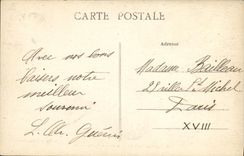 CARTE POSTALE
Adresse
Avec nos bons
baisers notre
meilleur
souvenir
Madame Bailleau
25 villa St Michel
Paris
XVIII